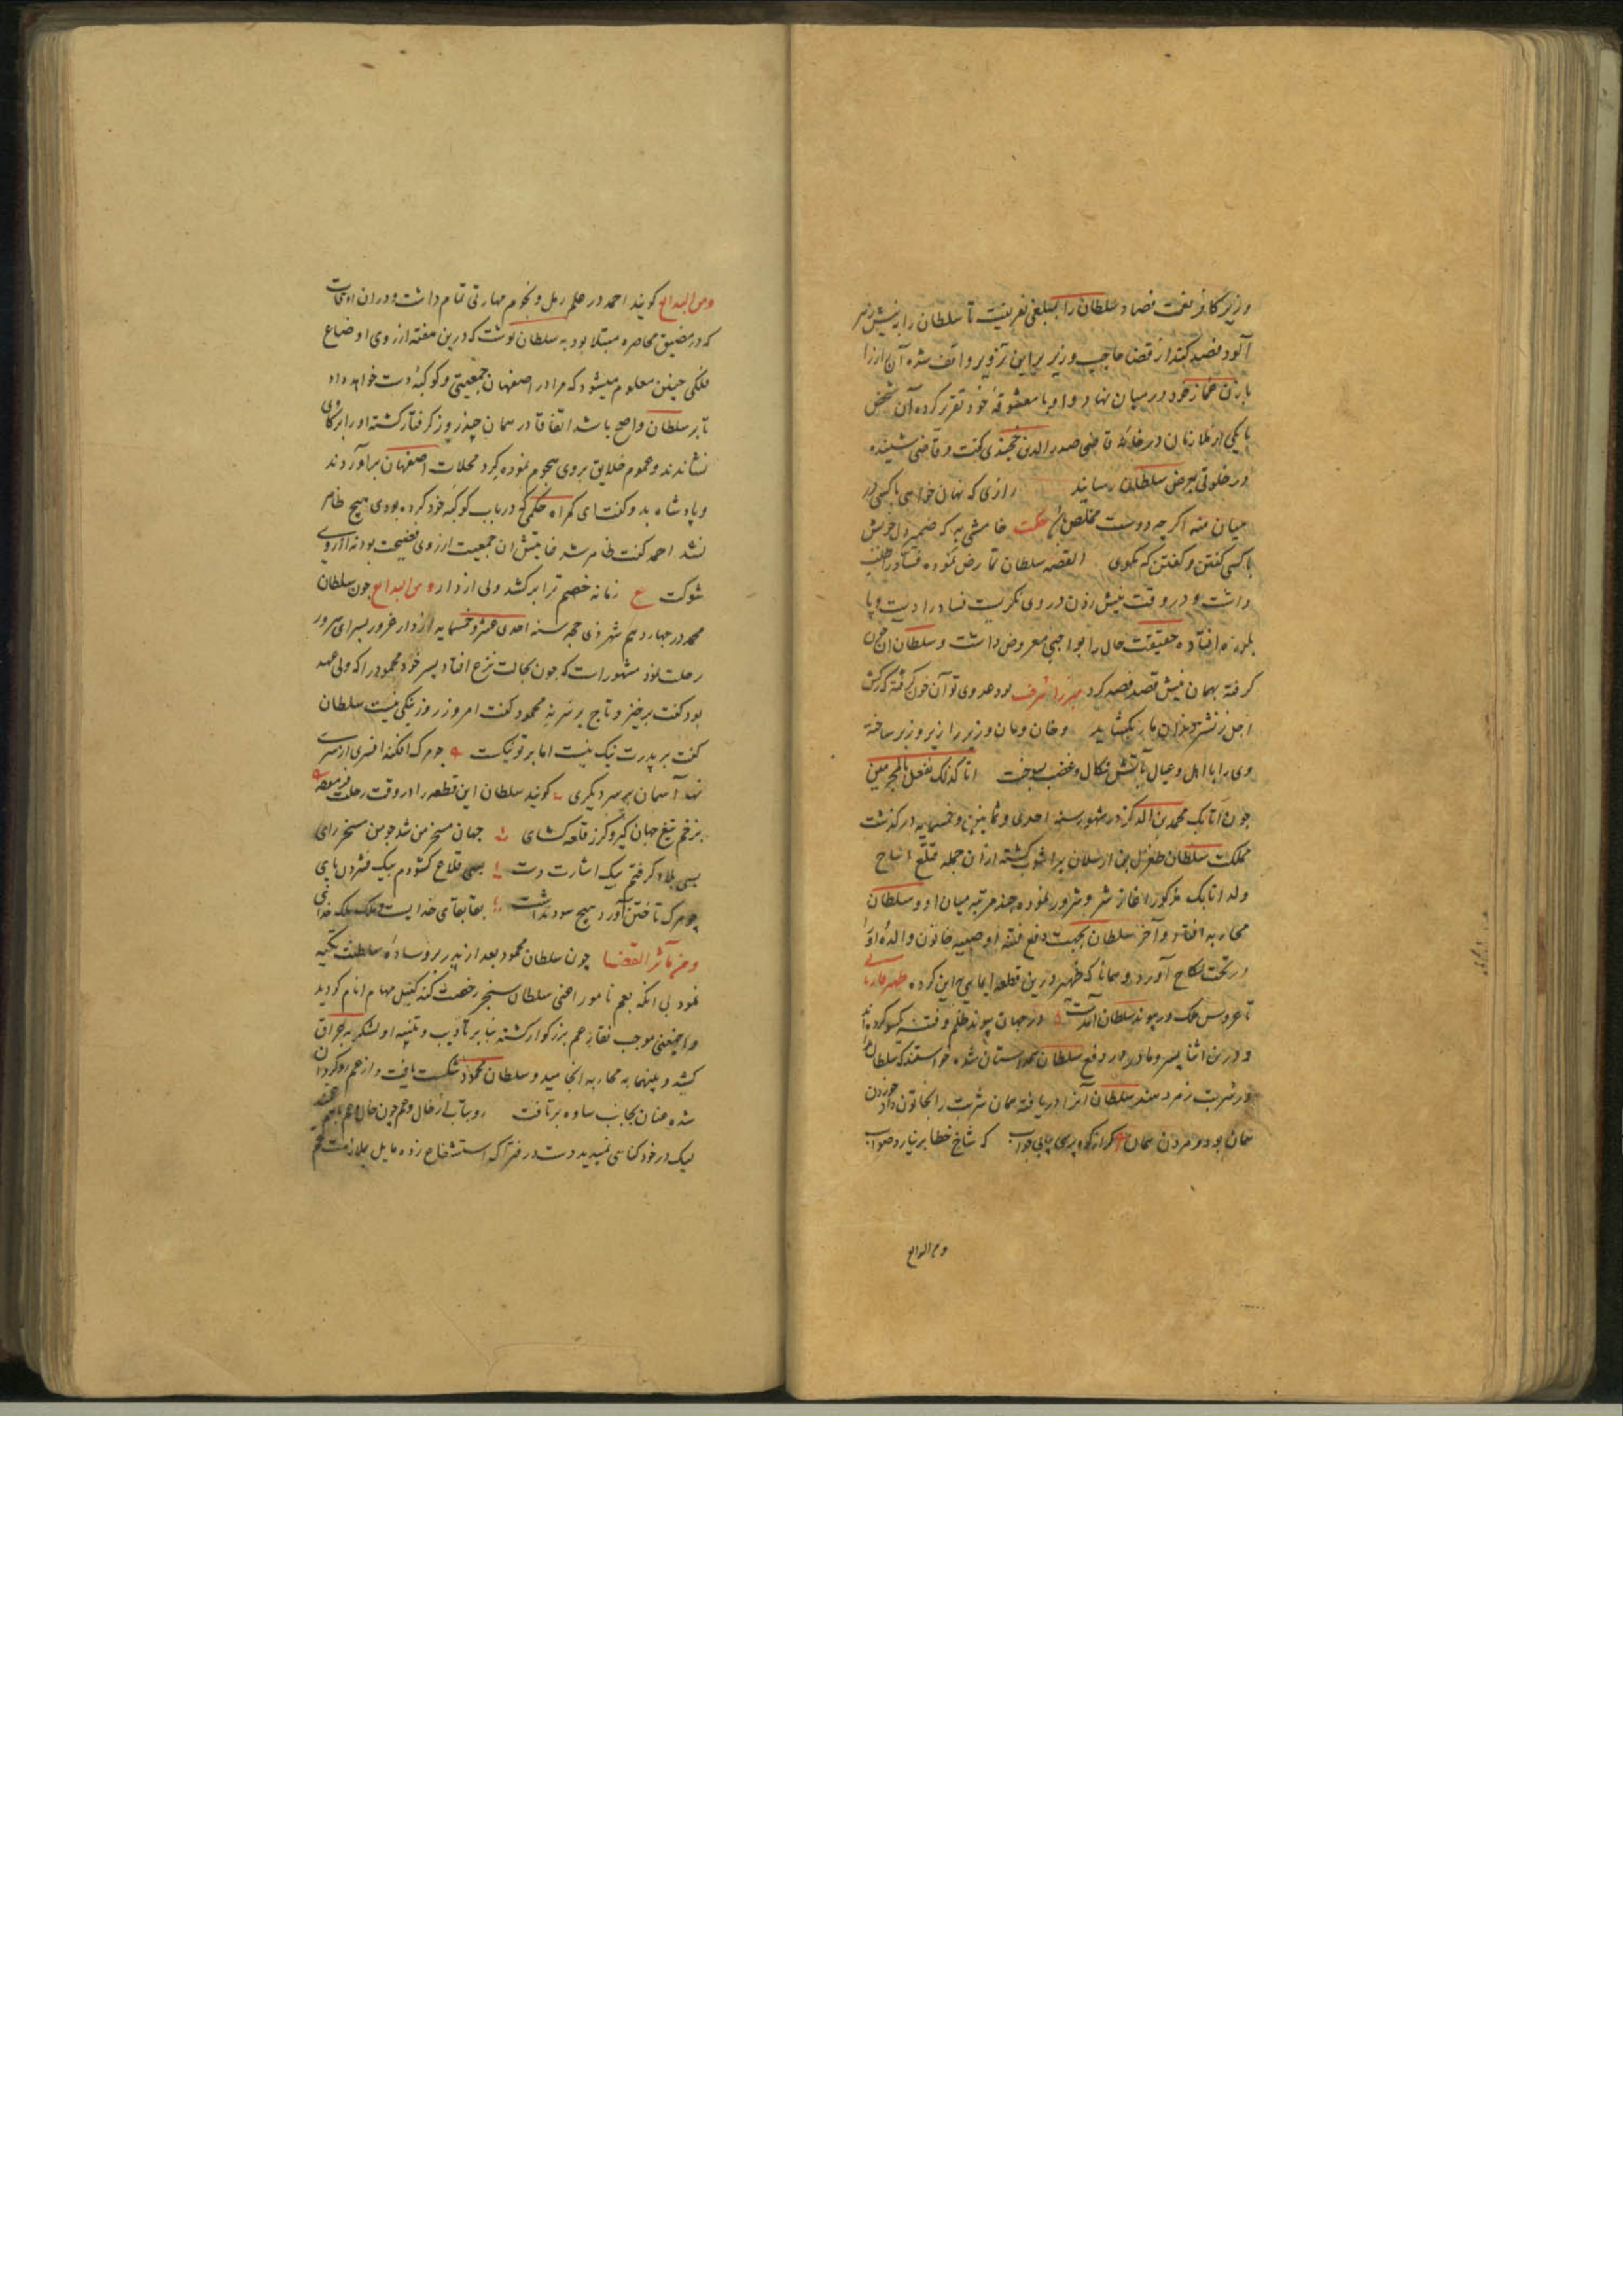 وزیر کافر نعمت فصاد سلطان را بمبلغی بفریفت تا سلطان را بنیش زهر
آلود فصد کند از قضا حاجب وزیر بر این تزویر واقف شده آن راز را
با زن غماز خود در میان نهاد و او با معشوقهٔ خود تقریر کرده آن شخص
با یکی از ملازمان در خانهٔ قاضی صدر الدین خجندی گفت و قاضی شنیده
در خلوتی بعرض سلطان رسانید رازی که نهان خواهی با کسی در
میان منه اگر چه دوست مخلص باشد حکمت خامشی به که ضمیر دل خویش
با کسی گفتن و گفتن که مگوی القصه سلطان تمارض نموده فصاد را طلب
داشت و در وقت نیش زدن در وی نگریست فصاد را دست و پا
بلرزه افتاده حقیقت حال را بواجبی معروض داشت و سلطان آن خون
گرفته بهمان نیش فصد کرد میرزا شرف بود عدوی تو آن خون گرفته کش
اجل ز نشتر بگشاید و خان و مان وزیر را زیر و زبر ساخته
وی را با اهل و عیال بآتش نکال و غضب بسوخت انا کذلک نفعل بالمجرمین
چون اتابک محمد بن الدکز در شهور سنه احدی و ثمانین و خمسمایه درگذشت
مملکت سلطان طغرل بن ارسلان پر آشوب گشته از آن جمله قتلغ انباج
ولد اتابک مذکور آغاز شر و شرور نموده چند مرتبه میان او و سلطان
محاربه افتاد و آخر سلطان بجهت دفع فتنه او صبیه خاتون والدهٔ او را
در تحت نکاح آورد و همانا که ظهیر درین قطعه ایما بهمین کرده ظهیر فاریابی
تا عروس ملک در پیوند سلطان آمدست در جهان پیوند ظلم و فتنه یکسو کرده اند
و درین اثنا پسر و مادر در دفع سلطان همداستان شده خواستند که سلطان را
در شربت زهر دهند سلطان آنرا دریافته همان شربت را بخاتون داد خوردن
همان بود و مردن همان گر از کوه پرسی بیابی جواب که شاخ خطا بر نیارد صواب
ومن البدایع
ومن البدایع گویند احمد در علم رمل و نجوم مهارتی تمام داشت و در آن اوقات
که در مضیق محاصره مبتلا بود به سلطان نوشت که درین هفته از روی اوضاع
فلکی چنین معلوم میشود که مرا در اصفهان جمعیتی و کوکبهٔ دست خواهد داد
تا بر سلطان واضح باشد اتفاقا در همان چند روز گرفتار گشته او را بر گاوی
نشاندند و عموم خلایق بروی هجوم نموده گرد محلات اصفهان برآوردند
و پادشاه بدو گفت ای گمراه حکمی که در باب کوکبهٔ خود کرده بودی هیچ ظاهر
نشد احمد گفت ظاهر شد غایتش آن جمعیت از روی فضیحت بود نه از روی
شوکت ع زمانه خصم ترا بر کشد ولی از دار ومن البدایع چون سلطان
محمد در چهاردهم شهر ذی حجه سنه احدی عشر و خمسمایه از دار غرور بسرای سرور
رحلت نمود مشهور است که چون بحالت نزع افتاد پسر خود محمود را که ولی عهد
بود گفت برخیز و تاج بر سر نه محمود گفت امروز روز نیکی نیست سلطان
گفت بر پدرت نیک نیست اما بر تو نیکست چو مرگ افکند افسری از سری
نهد آسمان بر سر دیگری گویند سلطان این قطعه را در وقت رحلت فرموده
بزخم تیغ جهان گیر و گرز قلعه گشای جهان مسخر من شد چو من مسخر رای
بسی بلاد گرفتم بیک اشارت دست بسی قلاع گشودم بیک فشردن پای
چو مرگ تاختن آورد هیچ سود نداشت بقا بقای خدایست و ملک ملک خدای
ومن مآثر القضا چون سلطان محمود بعد از پدر بر وسادهٔ سلطنت تکیه
نمود بی آنکه بعم نامور اعنی سلطان سنجر رخصت کند کفیل مهام انام گردید
و این معنی موجب نقار عم بزرگوار گشته بنابر تأدیب و تنبیه او لشکر به عراق
کشید و بینهما به محاربه انجامید و سلطان محمود شکست یافت و از عم روگردان
شده عنان بجانب ساوه برتافت
لیک در خود کناسی نمیدید دست در فتراک استشفاع زده مایل بملازمت عم